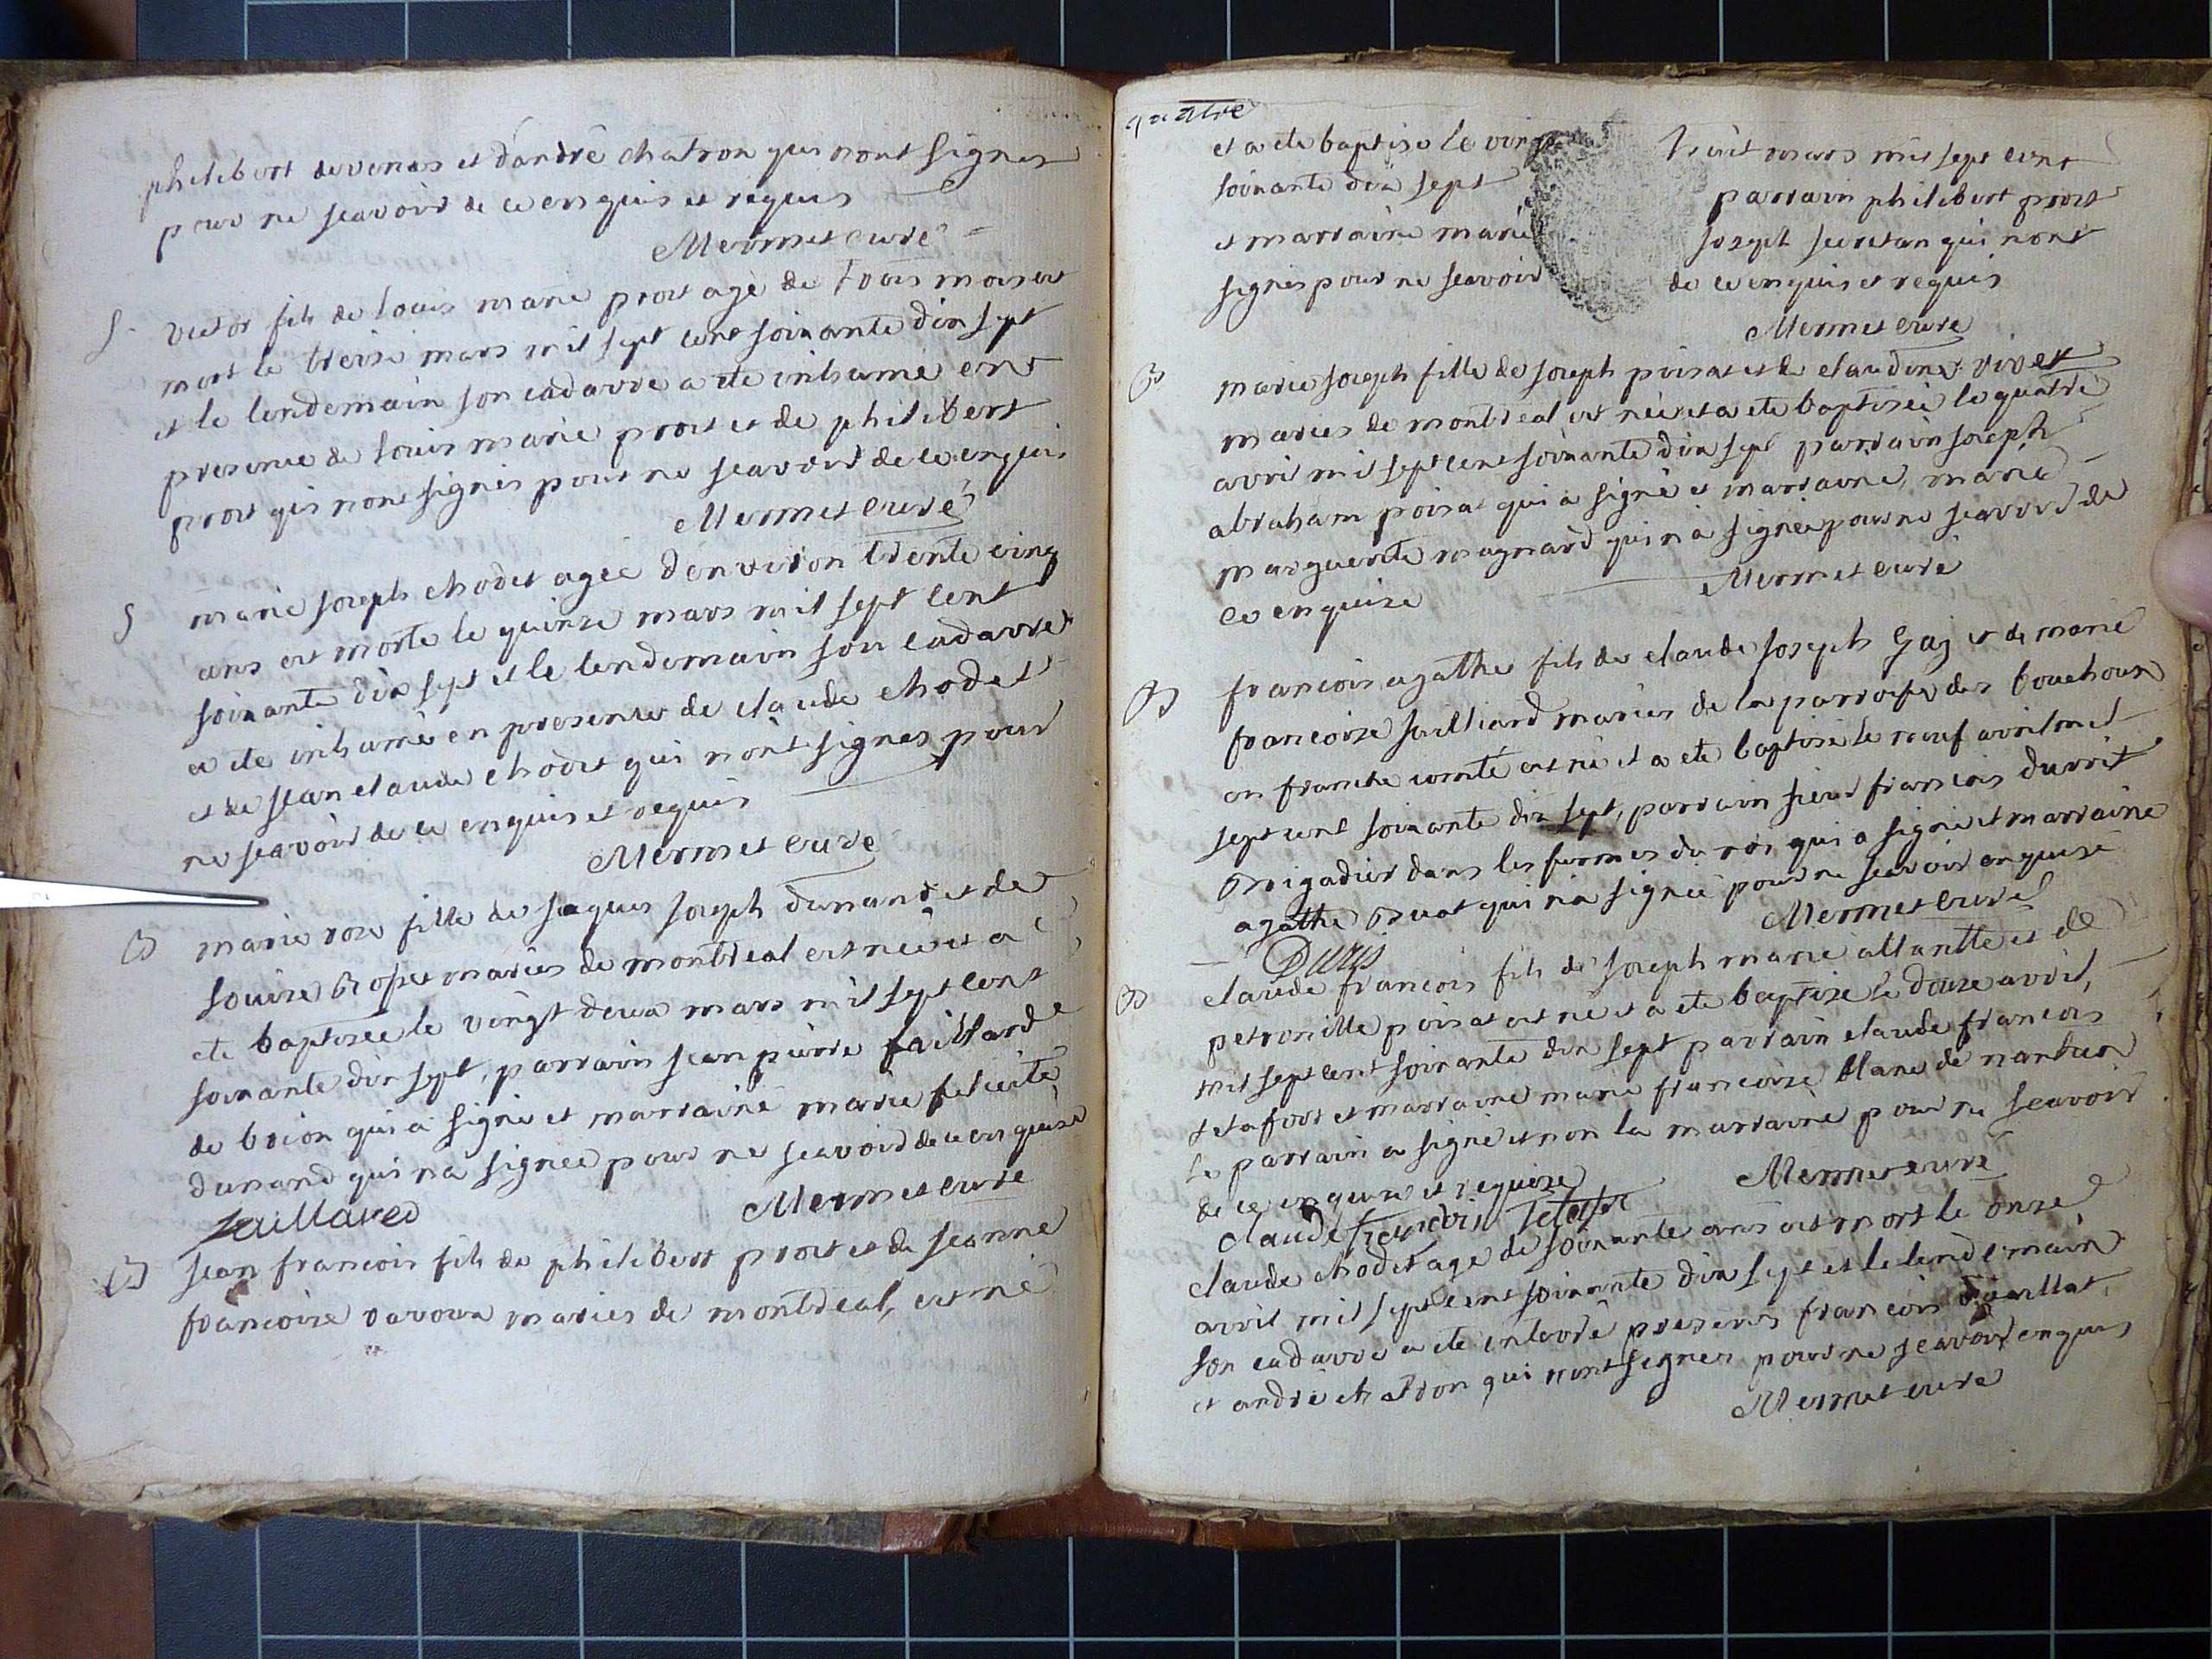 philibert devenas et d'andré chatron qui nont signes
pour ne scavoir de ce enquis et requis
Mermet curé
S victor fils de louis marie prost agé de trois mois est
mort le treise mars mil sept cent soixante dix sept
et le lendemain son cadavre a ete inhumé en
presence de louis marie prost et de philibert
prost qui nont signés pour ne scavoir de ce enquis
Mermet curé
S marie joseph chodet agée denviron trente cinq
ans est morte le quinze mars mil sept cent
soixante dix sept et le lendemain son cadavre
a ete inhumé en presence de claude chodet
et de jean claude chodet qui nont signes pour
ne scavoir de ce enquis et requis
Mermet curé
B marie rose fille de jaques joseph dunand et de
louise maries de montreal est née et a
ete baptisée le vingt deux mars mil sept cent
soixante dix sept, parrain jean pierre faillard
de brion qui a signé et marraine marie felicité
dunand qui na signée pour ne scavoir de ce enquise
faillard Mermet curé
B jean francois fils de philibert prost et de jeanne
francoise ravoux maries de montreal, est né
quatre
et a ete baptisé le vingt huit mars mil sept cent
soixante dix sept parrain philibert prost
et marraine marie joseph secretan qui nont
signés pour ne scavoir de ce enquis et requis
Mermet curé
B marie joseph fille de joseph poisat et de claudine vivet
maries de montreal est née et a ete baptisée le quatre
avril mil sept cent soixante dix sept parrain joseph
abraham poisat qui a signé et marraine, marie
marguerite magnard qui na signée pour ne scavoir de
ce enquise Mermet curé
B francois agathe fils de claude joseph gaj et de marie
francoise juilliard maries de la parroisse des bouchoux
en franche comté est né et a ete baptisé le neuf avril mil
sept cent soixante dix sept, parrain sieur francois
Brigadier dans les fermes du roi qui a signé et marraine
agathe qui na signée pour ne scavoir enquise
Mermet curé
B claude francois fils de joseph marie allantte et de
petronille poisat est né et a ete baptisé le douze avril,
mil sept cent soixante dix sept parrain claude francois
tetafort et marraine marie francoise blanc de nantua
le parrain a signé et non la marraine pour ne scavoir
de ce enquise et requise Mermet curé
claude francois
claude chodet agé de soixante ans est mort le onze
avril mil sept cent soixante dix sept et le lendemain
son cadavre a ete enterré presents francois
et andré chatron qui nont signes pour ne scavoir enquis
Mermet curé